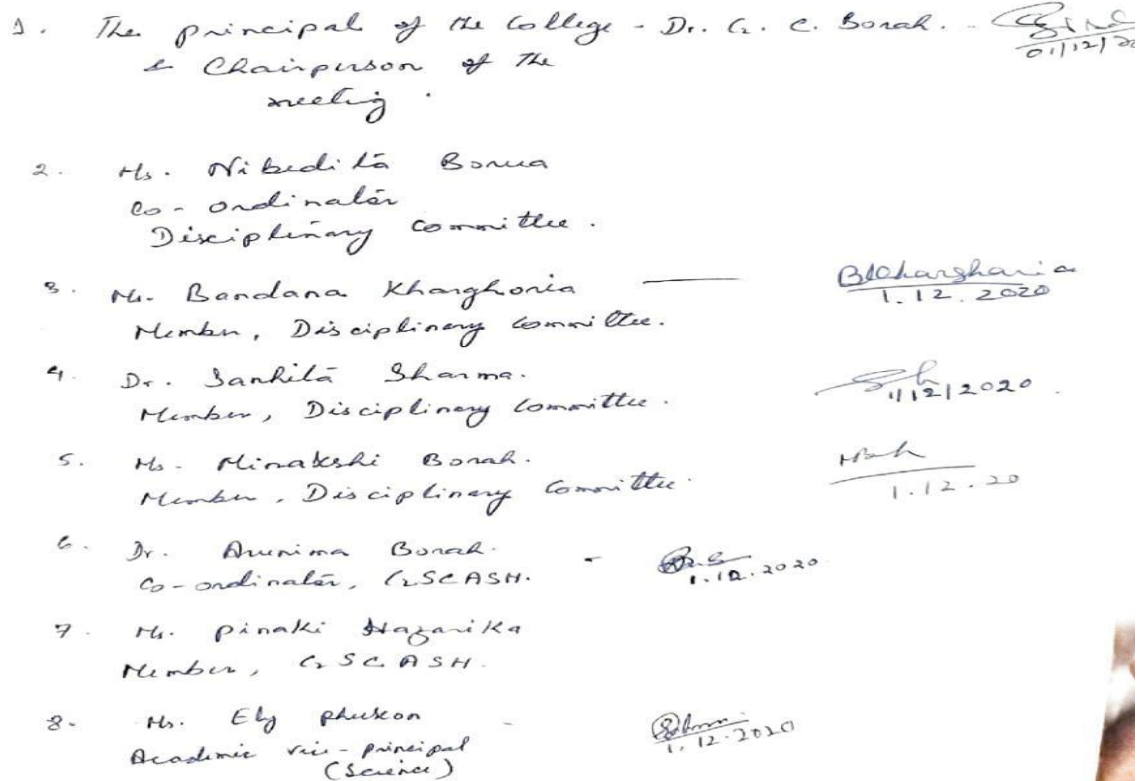 1. The principal of the College - Dr. G. C. Borah. - 01/12/20
& Chairperson of the
meeting.
2. Ms. Nibedita Borua
Co-ordinator
Disciplinary Committee.
3. Ms. Bandana Kharghoria — BKharghoria
1.12.2020
Member, Disciplinary Committee.
4. Dr. Sanhita Sharma.
1/12/2020
Member, Disciplinary Committee.
5. Ms. Minakshi Borah.
Member, Disciplinary Committee.
1.12.20
6. Dr. Arunima Borah. -
1.12.2020
Co-ordinator, GSCASH.
7. Ms. Pinaki Hazarika
Member, GSCASH.
8. Ms. Ely Phukon -
1.12.2020
Academic vice-principal
(Science)